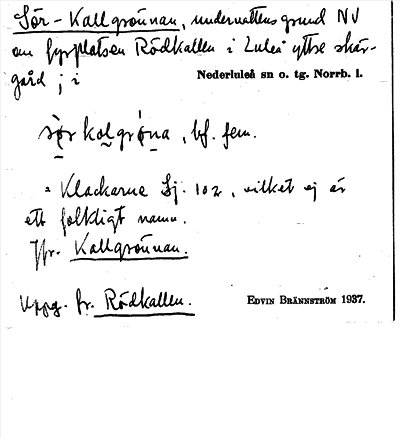 Sör-Kallgrönnan, undervattensgrund NV
om fyrplatsen Rödkallen i Luleå yttre skär-
gård; i
Nederluleå sn o. tg. Norrb. l.
sör kalgröna, bf. fem.
= Klackarna Sj. 102, vilket ej är
ett folkligt namn.
Jfr. Kallgrönnan.
Uppg. fr. Rödkallen.
EDVIN BRÄNNSTRÖM 1937.